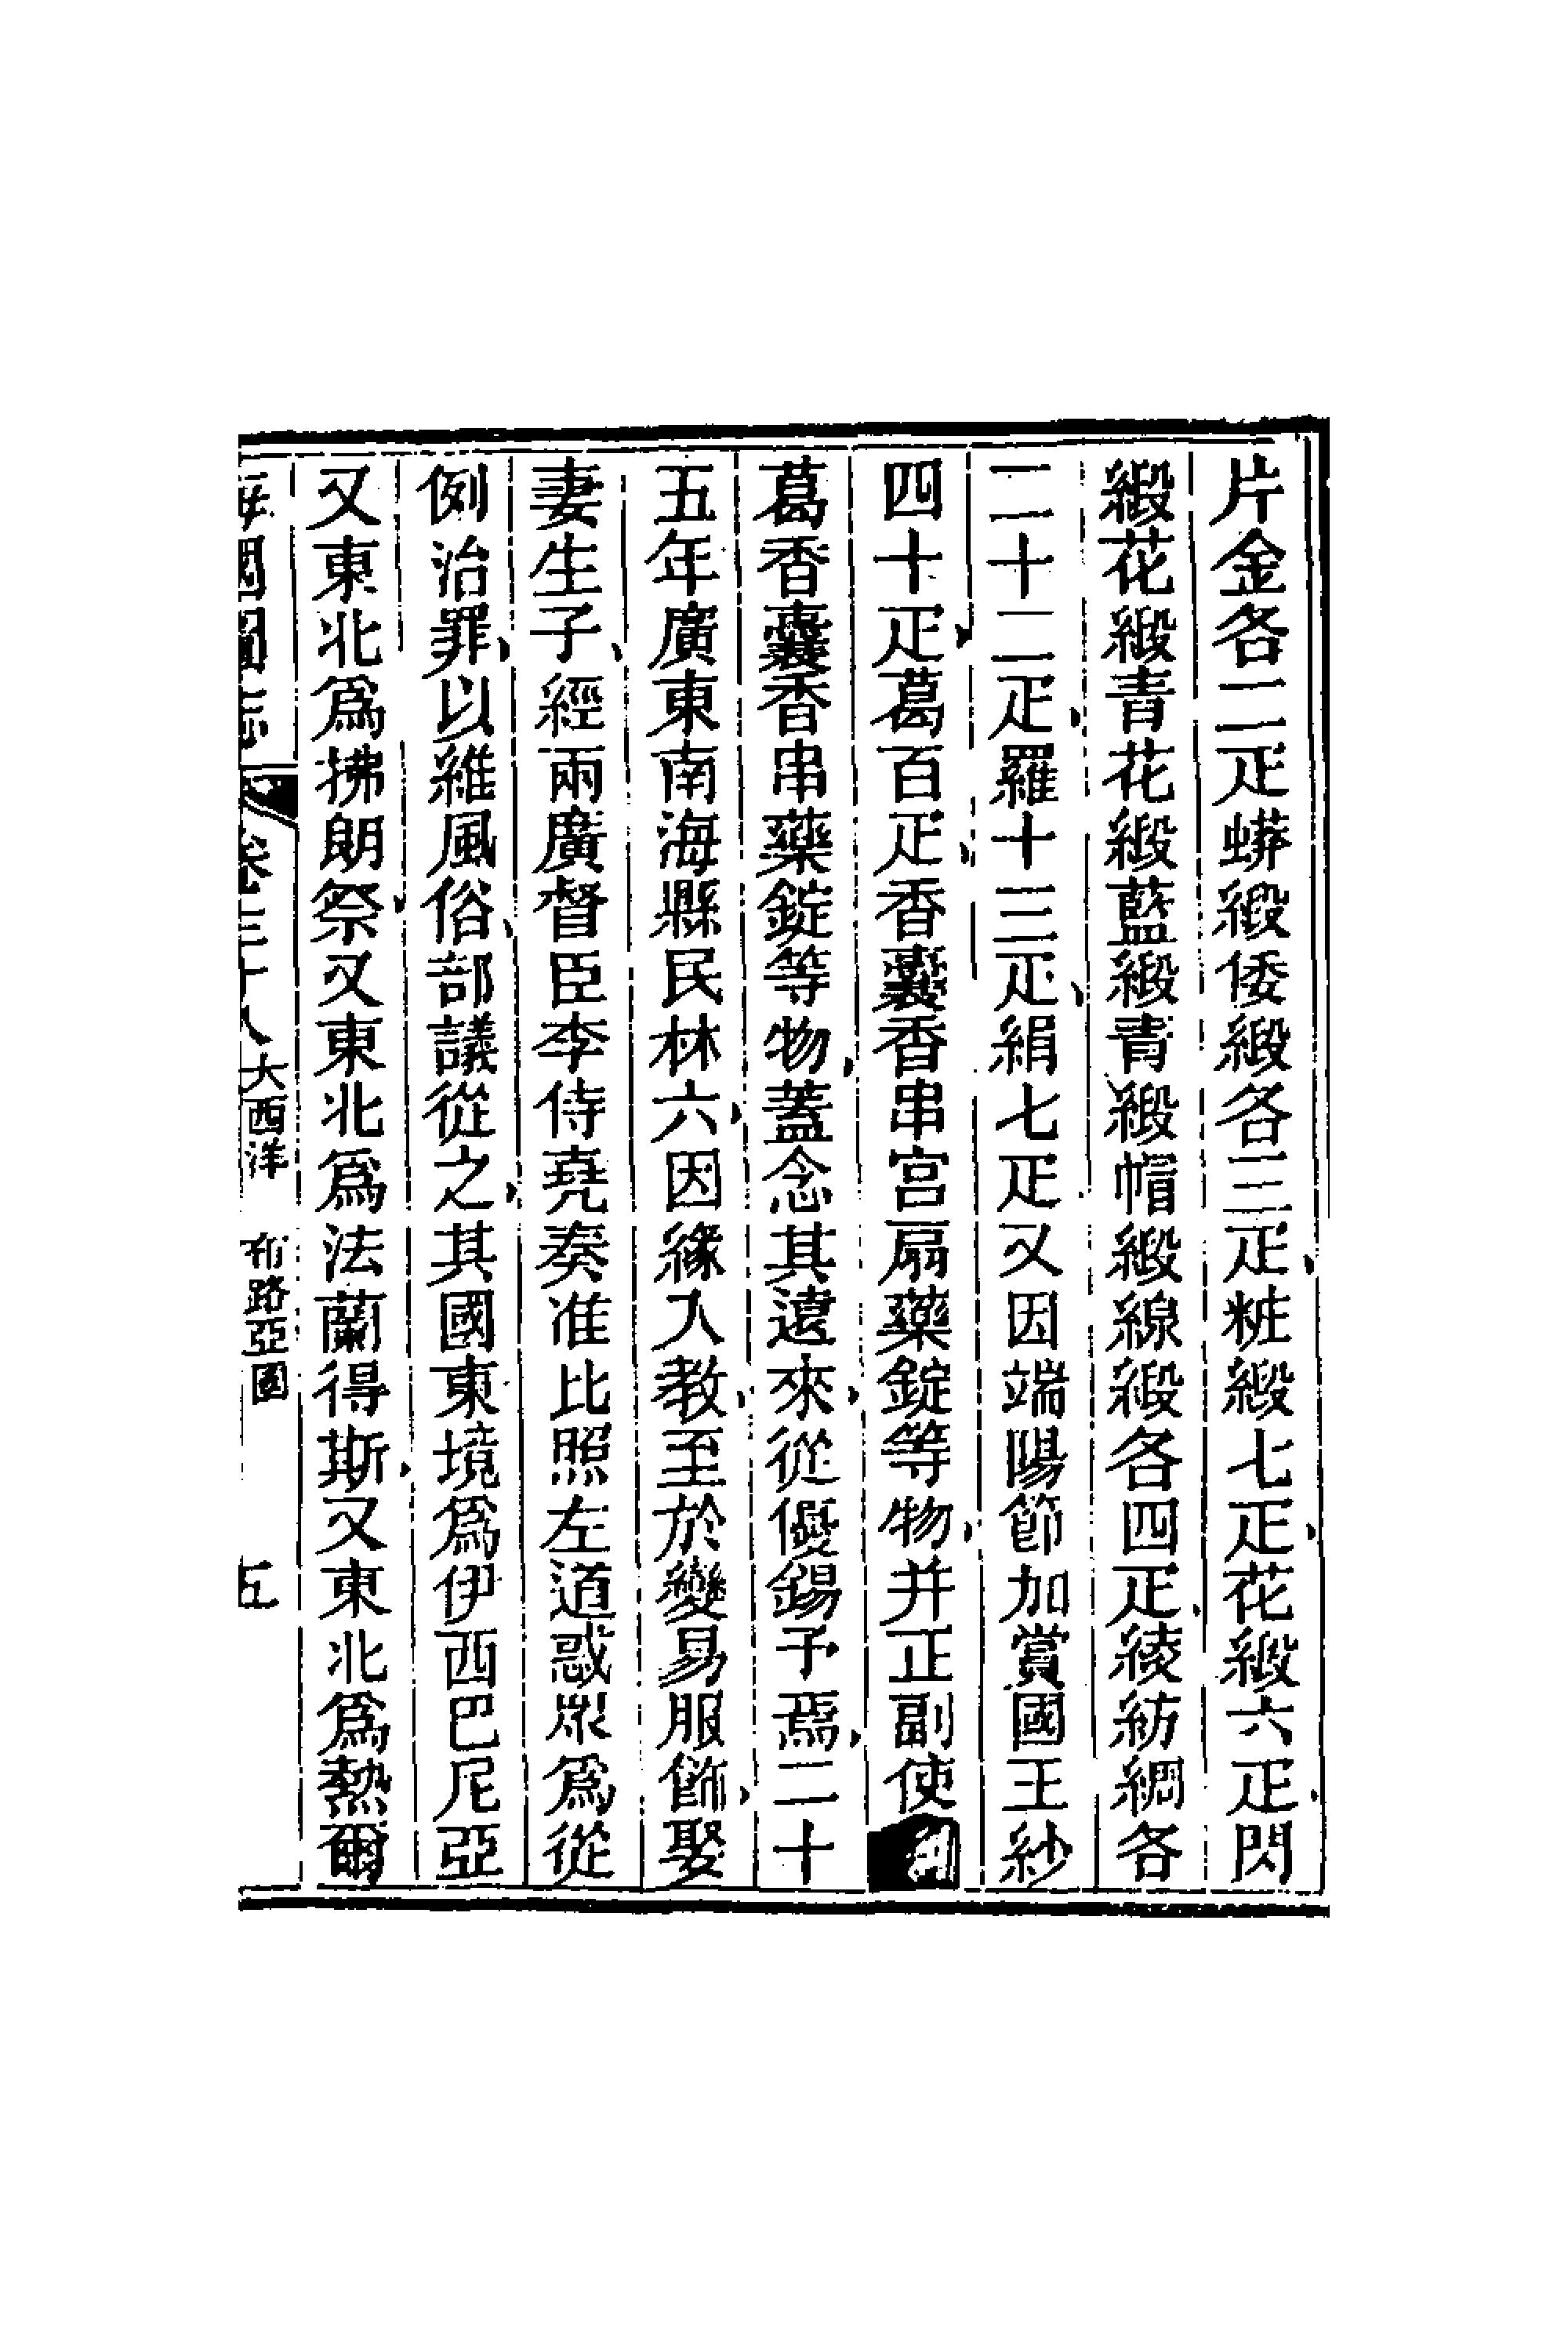 片金各二疋蟒緞倭緞各三疋粧緞七疋花緞六疋閃
緞花緞青花緞藍緞青緞帽緞線緞各四疋綾紡綢各
二十二疋羅十三疋絹七疋又因端陽節加賞國王紗
四十疋葛百疋香囊香串宫扇藥錠等物并正副使
葛香囊香串藥錠等物蓋念其遠來從優錫予焉二十
五年廣東南海縣民林六因緣入教至於變易服飾娶
妻生子經兩廣督臣李侍堯奏准比照左道惑眾爲從
例治罪以維風俗部議從之其國東境爲伊西巴尼亞
又東北爲拂朗祭又東北爲法蘭得斯又東北爲熱爾
海國圖志 卷三十八 大西洋 布路亞國 五